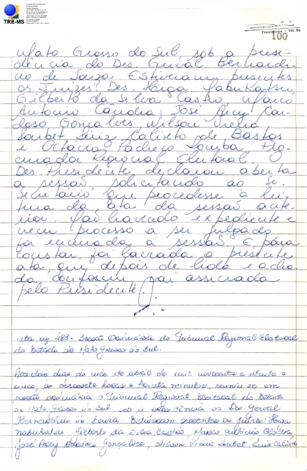 TRE-MS
100
Mato Grosso do Sul, sob a presi-
dência do Des. Gerval Bernardi-
no de Souza. Estiveram presentes
os Juízes: Des.
Gilberto da Silva Castro, Marco
Antonio Candia, José Paey Car-
doso Gonçalves, Wilson Vieira
Loubet, Luiz Calixto de Bastos
e Octavia Pacheco Lomba, Pro-
curadora Regional Eleitoral. O
Des. Presidente declarou aberta
a sessão solicitando ao Se-
cretário que procedesse à lei-
tura da ata da sessão ante-
rior. Não havendo expediente e
nem processo a ser julgado
foi encerrada a sessão. E, para
constar, foi lavrada a presente
ata, que depois de lida e acha-
da conforme vai assinada
pelo Presidente.
Sessão Ordinária do Tribunal Regional Eleitoral
do Estado de Mato Grosso do Sul.
Aos dois dias do mês de abril de mil novecentos e oitenta e
cinco, às dezessete horas e trinta minutos, reuniu-se em
sessão ordinária o Tribunal Regional Eleitoral do Estado
de Mato Grosso do Sul, sob a presidência do Des. Gerval
Bernardino de Souza. Estiveram presentes os Juízes:
Gilberto da Silva Castro, Marco Antonio Candia,
José Paey Cardoso Gonçalves, Wilson Vieira Loubet, Luiz Calixto